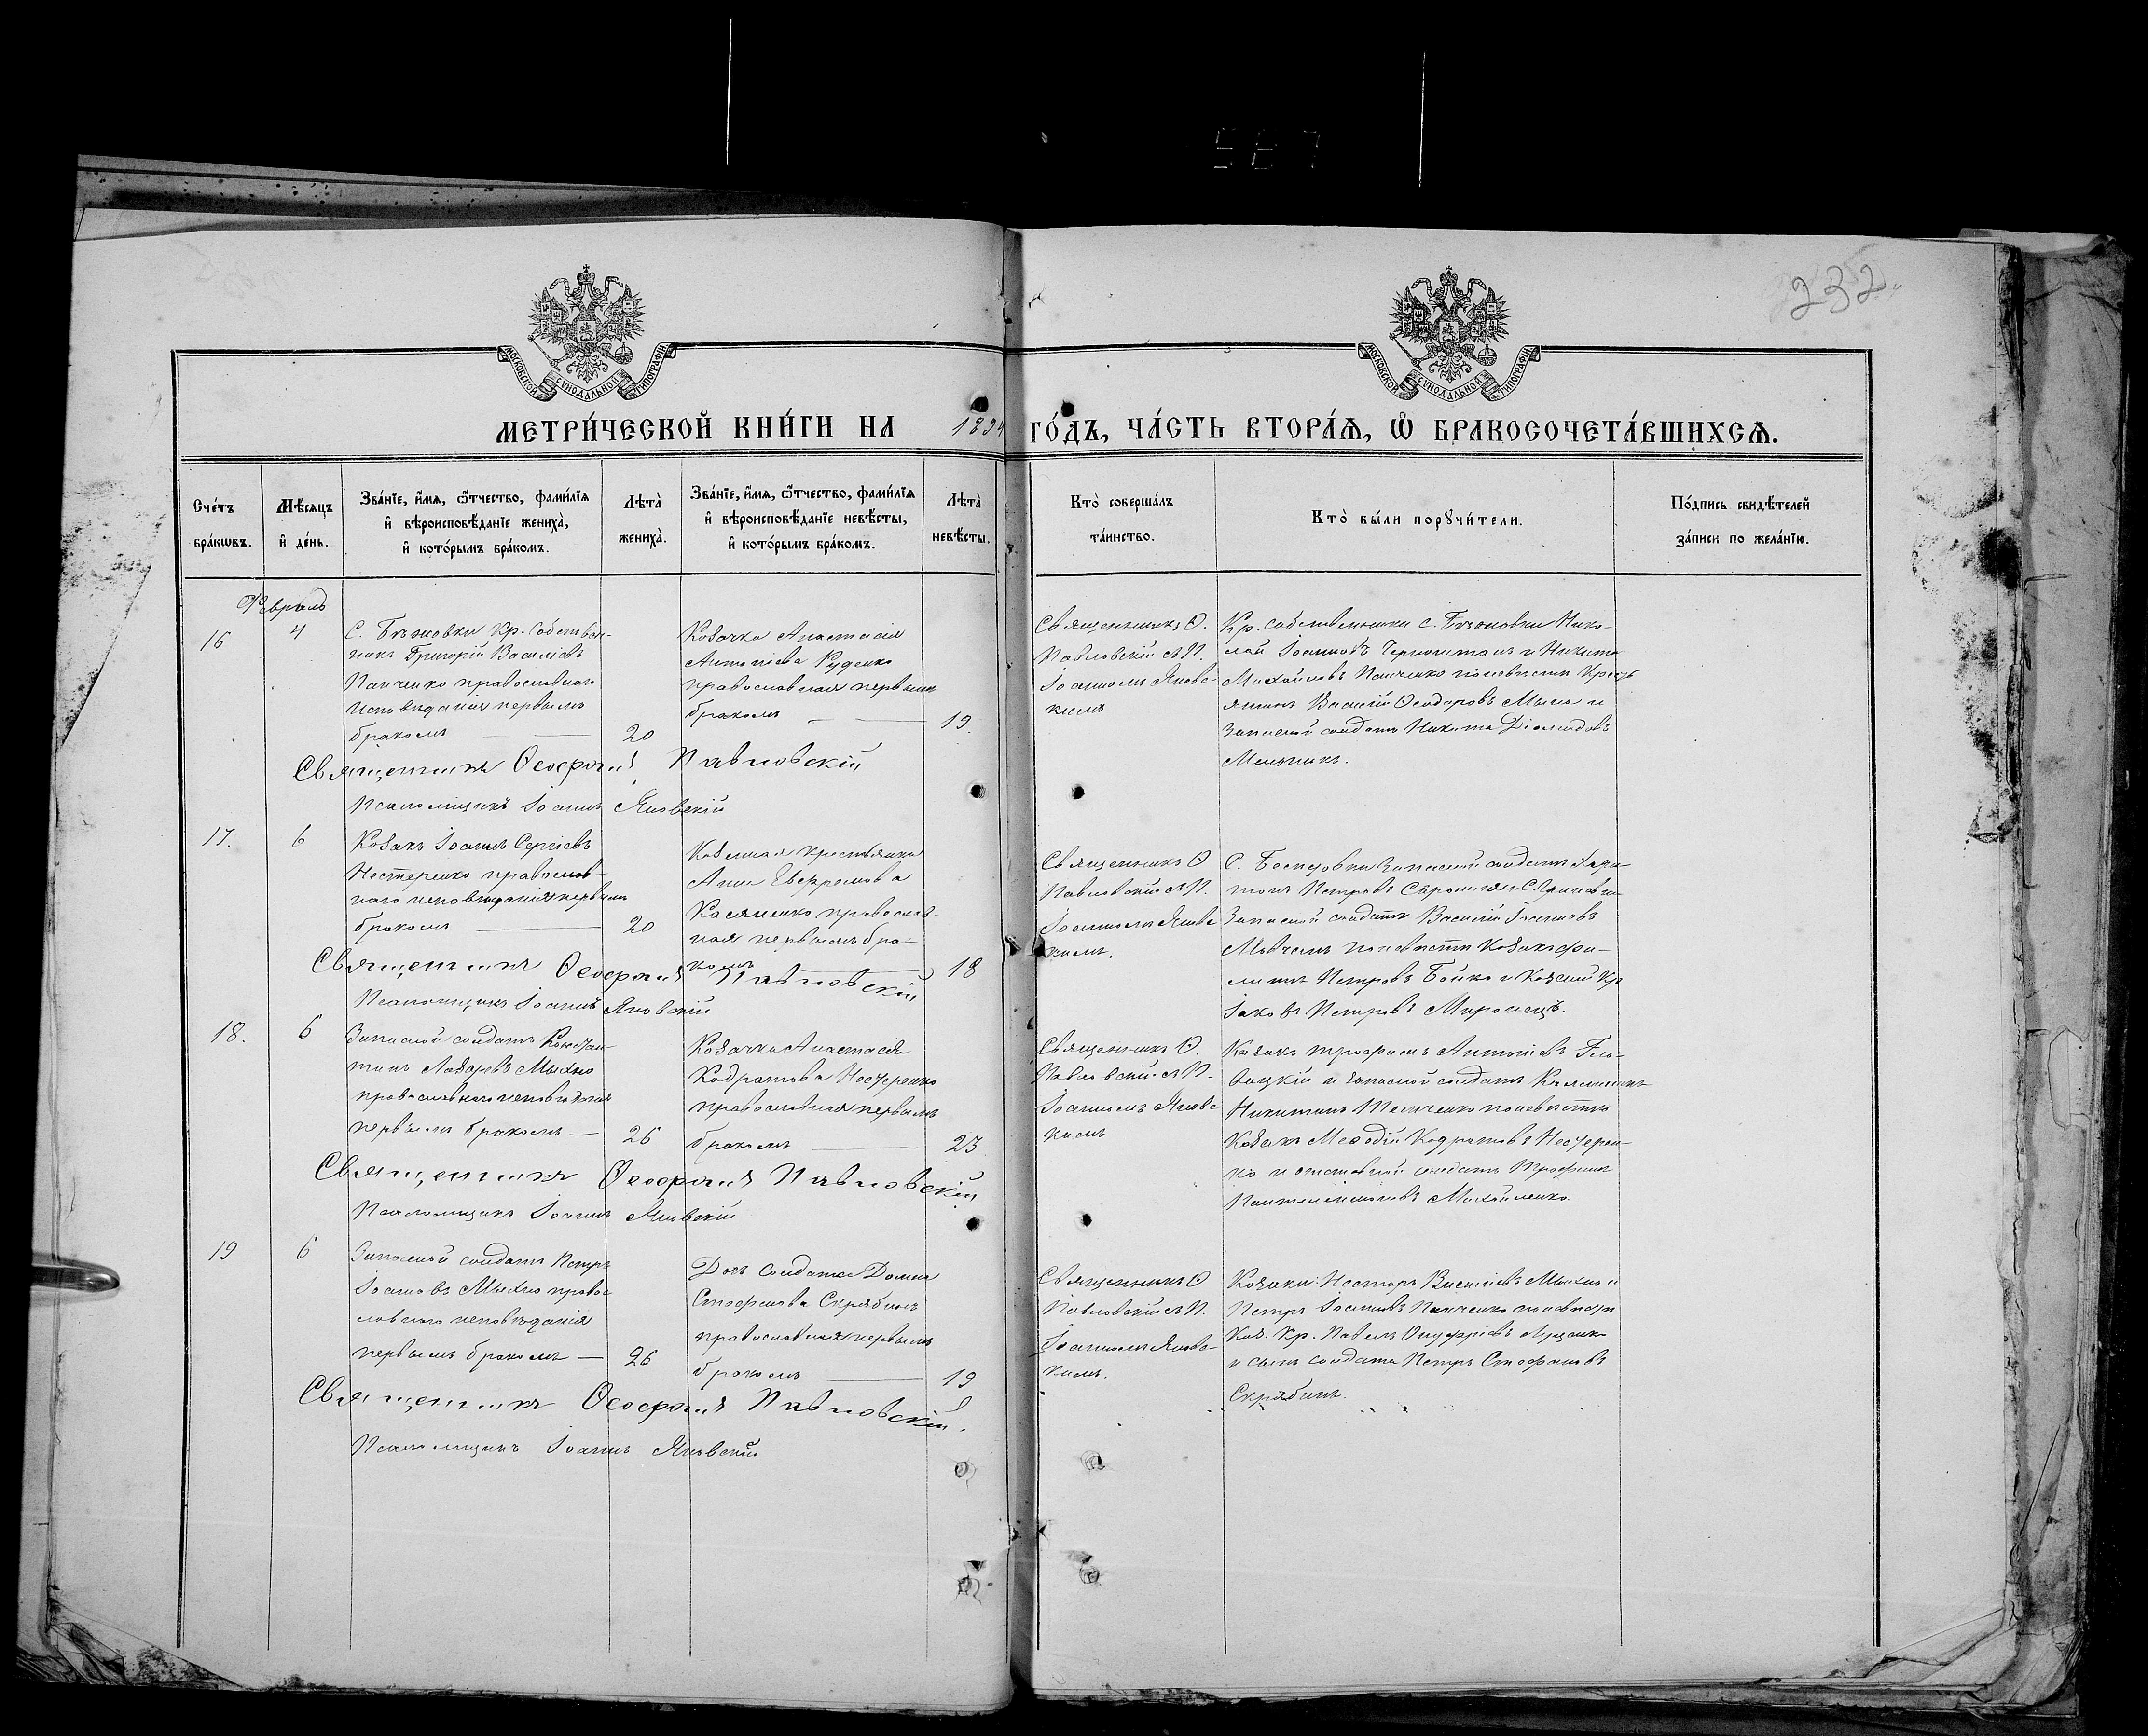 587
232
МОСКОВСКОЙ СѴНОДАЛЬНОЙ ТИПОГРАФІИ
МОСКОВСКОЙ СѴНОДАЛЬНОЙ ТИПОГРАФІИ
МЕТРИ́ЧЕСКОЙ КНИ́ГИ НА 1894 ГО́ДЪ, ЧА́СТЬ ВТОРА́Ѧ, Ѡ҆ БРАКОСОЧЕТА́ВШИХСѦ.
Сче́тъ
бра́кѡвъ.
Мѣ́сѧцъ
и҆ де́нь.
Зва́нїе, и҆́мѧ, ѻ҆́тчество, фами́лїѧ
и҆ вѣроисповѣ́данїе жениха̀,
и҆ кото́рымъ бра́комъ.
Лѣта̀
жениха̀.
Зва́нїе, и҆́мѧ, ѻ҆́тчество, фами́лїѧ
и҆ вѣроисповѣ́данїе невѣ́сты,
и҆ кото́рымъ бра́комъ.
Лѣта̀
невѣ́сты.
Кто̀ соверша́лъ
та́инство.
Кто̀ бы́ли порꙋчи́тели.
По́дпись свидѣ́телей
за́писи по жела́нїю.
Февраль
16
4
С. Бѣжовки Кр. собствен-
никъ Григорій Василіевъ
Панченко православнаго
исповѣданія первымъ
бракомъ
20
Козачка Анастасія
Антоніева Руденко
православная первымъ
бракомъ
19.
Священникъ Ѳ.
Павловскій съ П.
Іоанномъ Яновс-
кимъ
Кр. собственники с. Бѣжовки Нико-
лай Іоанновъ и Никита
Михайловъ Панченко по невѣсти Крест
янинъ Василій Ѳеодоровъ и
Запасной солдатъ Никита Діомидовъ
Мельникъ.
Священникъ Ѳеофилъ Павловскій
Псаломщикъ Іоаннъ Яновскій
17.
6
Козакъ Іоаннъ Сергіевъ
Нестеренко православ-
наго исповѣданія первымъ
бракомъ
20
Казенная крестьянка
Анна Евфремова
Касяненко православ-
ная первымъ бра-
комъ
18
Священникъ Ѳ
Павловскій съ П.
Іоанномъ Яновс
кимъ.
С. запасной солдатъ Хари-
тонъ Петровъ
Запасной солдатъ Василій Іоанновъ
по невѣсти Козакъ Фи-
липпъ Петровъ Бойко и Казенный Кр
Іаковъ Петровъ Миронецъ.
Священникъ Ѳеофилъ Павловскій
Псаломщикъ Іоаннъ Яновскій
18.
6
Запасной солдатъ Констан-
тинъ Лазаревъ Мыхно
православнаго исповѣданія
первымъ бракомъ
26
Козачка Анастасія
Кодратова Нестеренко
православная первымъ
бракомъ
23
Священникъ Ѳ.
Павловскій съ П.
Іоанномъ Яновс
кимъ
Козакъ Трофимъ Антоніевъ Гло-
и запасной солдатъ
Никитинъ по невѣсти
Козакъ Меѳодій Кодратовъ Нестерен-
ко и отставной солдатъ Трофимъ
Пантелеимоновъ Михайленко.
Священникъ Ѳеофилъ Павловскій
Псаломщикъ Іоаннъ Яновскій
19
6
Запасный солдатъ Петръ
Іоановъ Мыхно право
славнаго исповѣданія
первымъ бракомъ
26
Доч. солдата Домна
Стефанова Скрябинъ
православная первымъ
бракомъ
19
Священникъ Ѳ
Павловскій съ П.
Іоанномъ Яновс-
кимъ.
Козаки: Несторъ Василіевъ Мыхно и
Петръ Іоанновъ Панченко по невѣсти
Каз. Кр. Павелъ Онуфріевъ
и сынъ солдата Петръ Стефановъ
Скрябинъ.
Священникъ Ѳеофилъ Павловскій.
Псаломщикъ Іоаннъ Яновскій